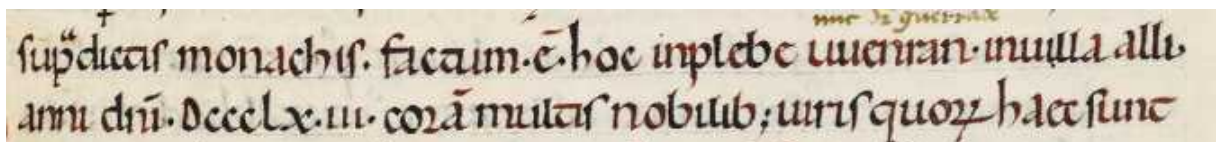 nūc dr̄
sup̄dictis monachis. factum .ē. hoc inplebe uuenran. inuilla alli.
anni dn̄i. Dccclx.iii. corā multis nobilib; uiris quoꝝ haec sunt